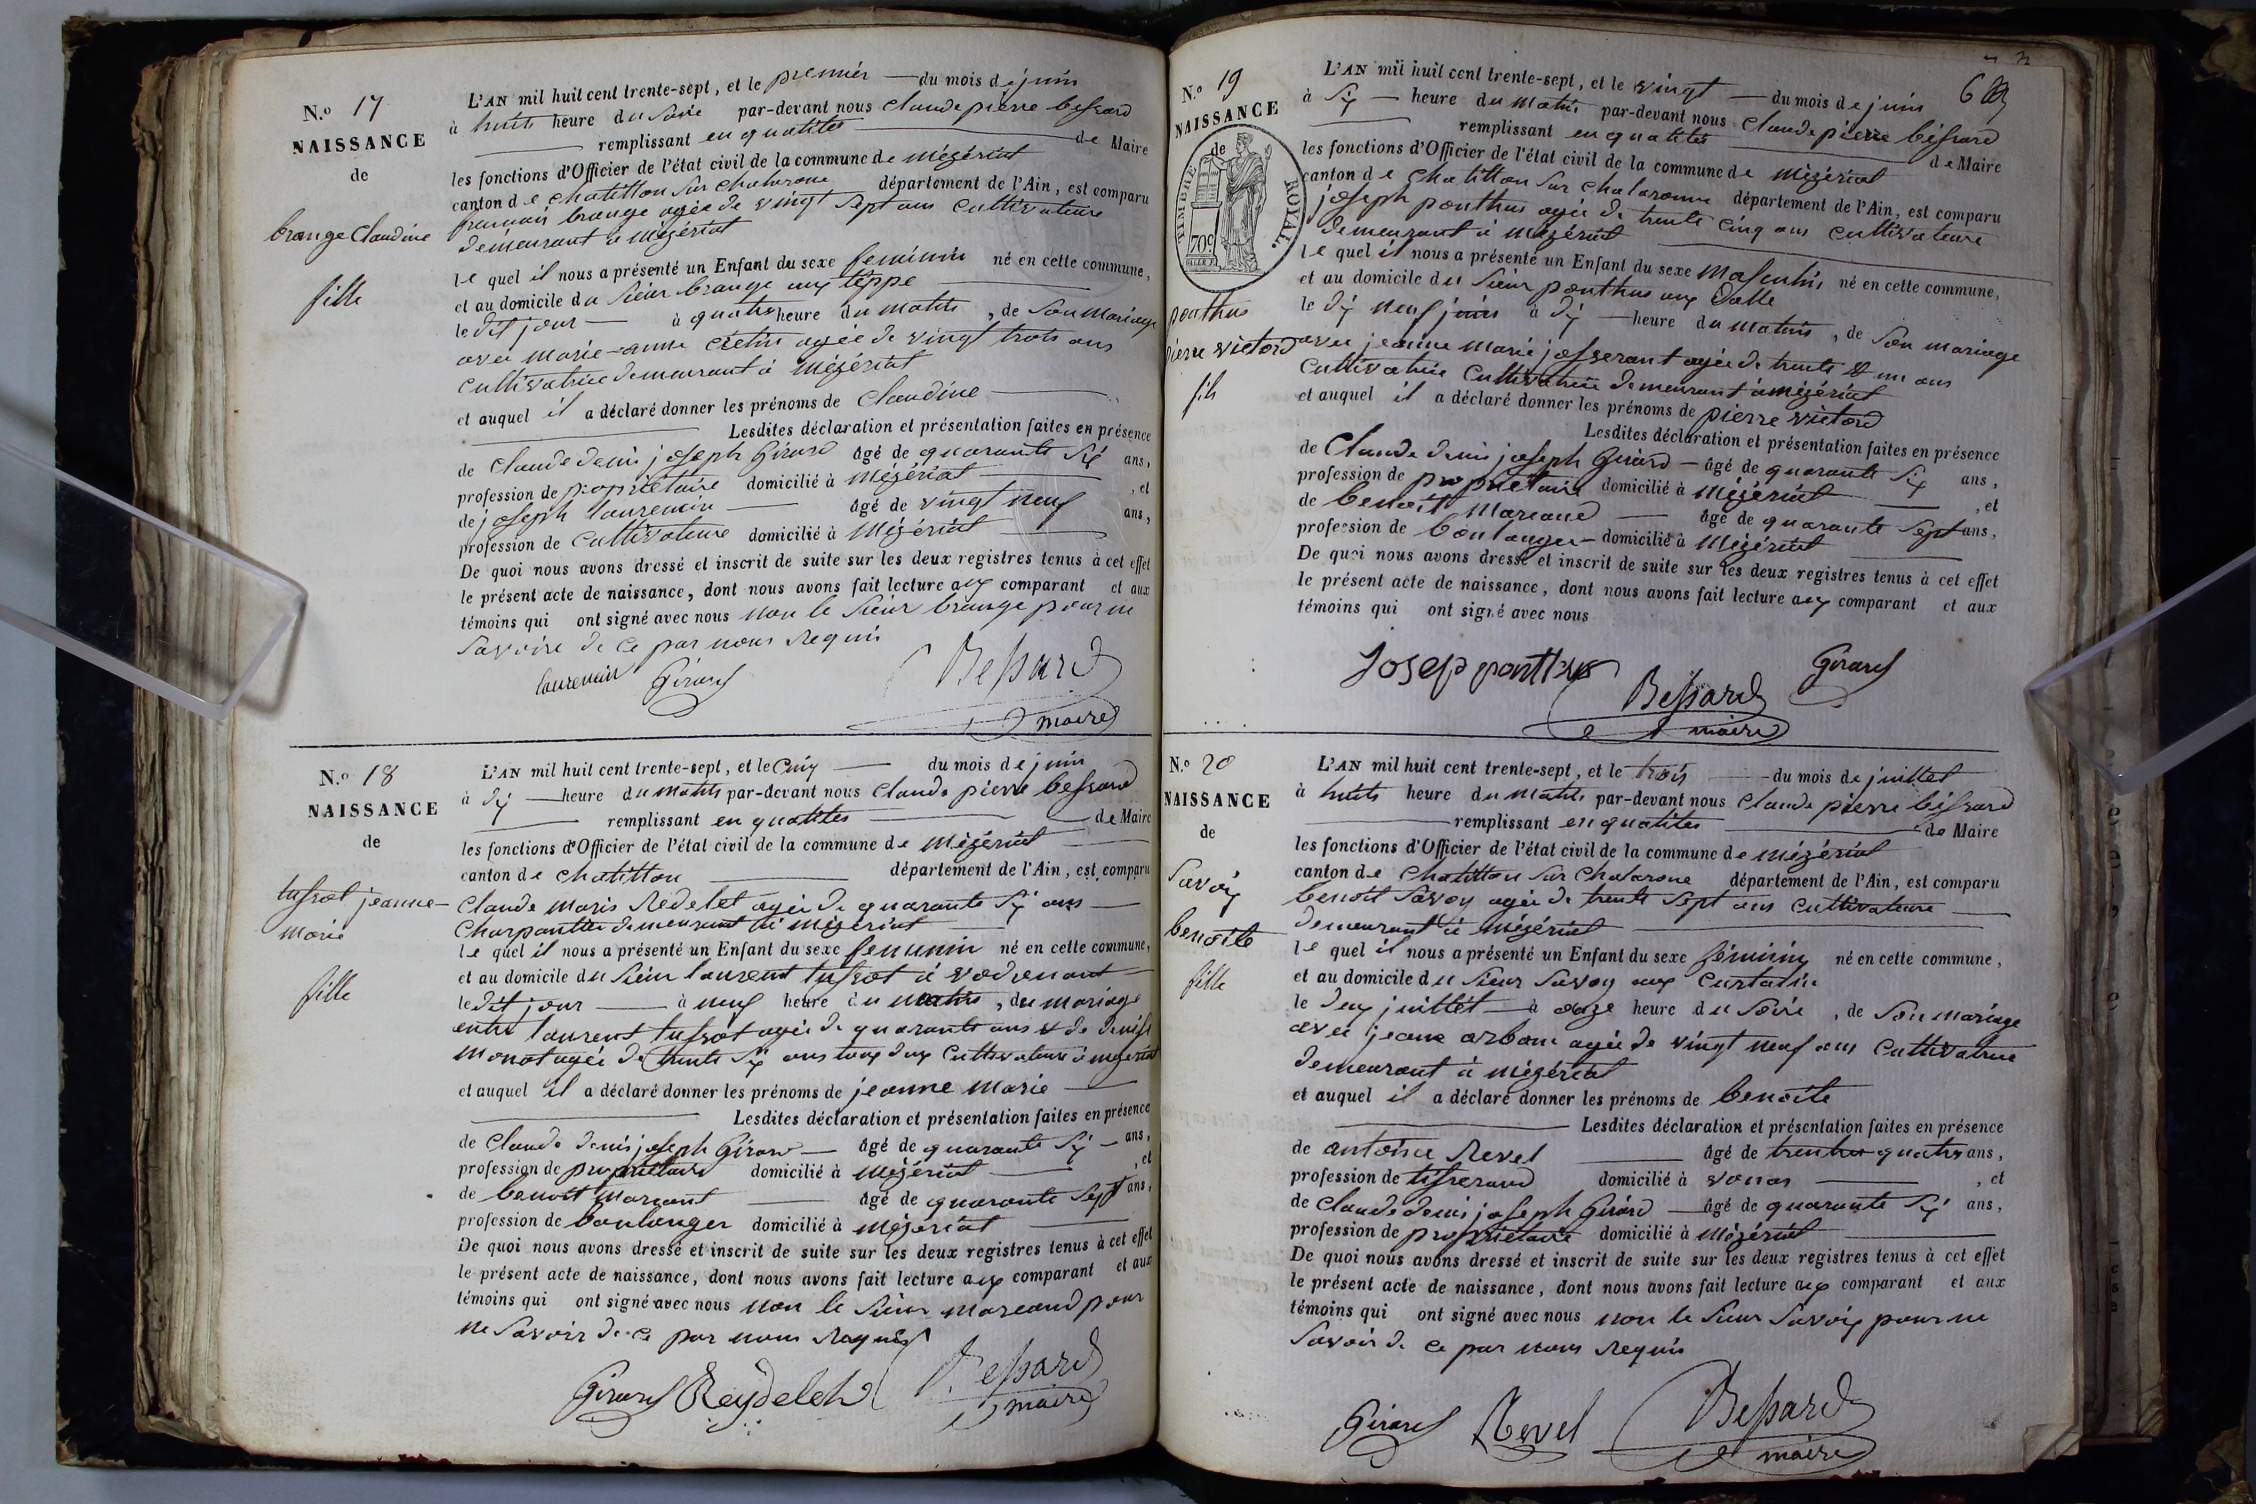 N.º 17
NAISSANCE
de
brange Claudine
fille
L'AN mil huit cent trente-sept, et le premier du mois de juin
à huits heure du Soire par-devant nous Claude pierre bessard
remplissant en qualités de Maire
les fonctions d'Officier de l'état civil de la commune de mézériat
canton de chatillon sur chalarone département de l'Ain, est comparu
francois brange agée de vingt sept ans Cultivateure
demeurant à mézériat
le quel il nous a présenté un Enfant du sexe feminin né en cette commune,
et au domicile du Sieur brange aux teppe
le dit jour à quatre heure du matin, de Son mariage
avec marie-anne crétin agée de vingt trois ans
Cultivatrice demeurant à mézériat
et auquel il a déclaré donner les prénoms de Claudine
Lesdites déclaration et présentation faites en présence
de Claude denis joseph Girard âgé de quarante Six ans,
profession de propriétaire domicilié à Mézériat, et
de joseph laurencin âgé de vingt neuf ans,
profession de Cultivateure domicilié à Mézériat
De quoi nous avons dressé et inscrit de suite sur les deux registres tenus à cet effet
le présent acte de naissance, dont nous avons fait lecture aux comparant et aux
témoins qui ont signé avec nous non le Sieur brange pour ne
Savoire de ce par nous Requis
laurencin Girard Bessard
maire
N.º 18
NAISSANCE
de
tussrot jeanne-
marie
fille
L'AN mil huit cent trente-sept, et le Cinq du mois de juin
à dix heure du matin par-devant nous Claude pierre bessard
remplissant en qualités de Maire
les fonctions d'Officier de l'état civil de la commune de mézériat
canton de chatillon département de l'Ain, est comparu
Claude Marie Redelet agée de quarante Six ans
Charpantier demeurant à mézériat
le quel il nous a présenté un Enfant du sexe feminin né en cette commune,
et au domicile du Sieur laurent tussrot à vodrenant
le dit jour à neuf heure du matin, du mariage
entre laurent tussrot agée de quarante ans & de denise
Monat agée de trente Six ans tous deux Cultivateure à mézériat
et auquel il a déclaré donner les prénoms de jeanne Marie
Lesdites déclaration et présentation faites en présence
de Claude denis joseph Girard âgé de quarante Six ans,
profession de propriétaire domicilié à Mézériat, et
de benoit Marcant âgé de quarante Sept ans,
profession de boulanger domicilié à Mézériat
De quoi nous avons dressé et inscrit de suite sur les deux registres tenus à cet effet
le présent acte de naissance, dont nous avons fait lecture aux comparant et aux
témoins qui ont signé avec nous non le Sieur marcand pour
ne Savoir de ce par nous Requis
Girard Reydelet Bessard
maire
N.º 19
NAISSANCE
de
TIMBRE ROYAL.
70 c
ponthus
pierre victord
fils
6
L'AN mil huit cent trente-sept, et le vingt du mois de juin
à Six heure du matin par-devant nous Claude pierre bessard
remplissant en qualités de Maire
les fonctions d'Officier de l'état civil de la commune de Mézériat
canton de Chatillon sur chalaronne département de l'Ain, est comparu
joseph ponthus agée de trente Cinq ans Cultivateure
demeurant à Mézériat
le quel il nous a présenté un Enfant du sexe Masculin né en cette commune,
et au domicile du Sieur ponthus aux Salle
le dix neuf juin à dix heure du matin, de Son mariage
avec jeanne marie josserant agée de trente & un ans
Cultivatrice Cultivatrice demeurant à mézériat
et auquel il a déclaré donner les prénoms de pierre victord
Lesdites déclaration et présentation faites en présence
de Claude denis joseph Girard âgé de quarante Six ans,
profession de propriétaire domicilié à Mézériat, et
de benoit Marcand âgé de quarante Sept ans,
profession de boulanger domicilié à Mézériat
De quoi nous avons dressé et inscrit de suite sur les deux registres tenus à cet effet
le présent acte de naissance, dont nous avons fait lecture aux comparant et aux
témoins qui ont signé avec nous
Josep ponthus Bessard Girard
maire
N.º 20
NAISSANCE
de
Savoiy
benoite
fille
L'AN mil huit cent trente-sept, et le trois du mois de juillet
à huits heure du matin par-devant nous Claude pierre bessard
remplissant en qualités de Maire
les fonctions d'Officier de l'état civil de la commune de mézériat
canton de Chatillon sur Chalarone département de l'Ain, est comparu
benoit Savoy agée de trente Sept ans Cultivateure
demeurant à mézériat
le quel il nous a présenté un Enfant du sexe féminin né en cette commune,
et au domicile du Sieur Savoy aux Curtatin
le deux juillet à onze heure du Soire, de Son mariage
avec jeanne arban agée de vingt neuf ans Cultivatrice
demeurant à mézériat
et auquel il a déclaré donner les prénoms de benoite
Lesdites déclaration et présentation faites en présence
de antoine Revel âgé de trente quatre ans,
profession de tisserand domicilié à vonas, et
de Claude denis joseph Girard âgé de quarante Six ans,
profession de propriétaire domicilié à Mézériat
De quoi nous avons dressé et inscrit de suite sur les deux registres tenus à cet effet
le présent acte de naissance, dont nous avons fait lecture aux comparant et aux
témoins qui ont signé avec nous non le Sieur Savoiy pour ne
Savoir de ce par nous Requis
Girard Revel Bessard
maire